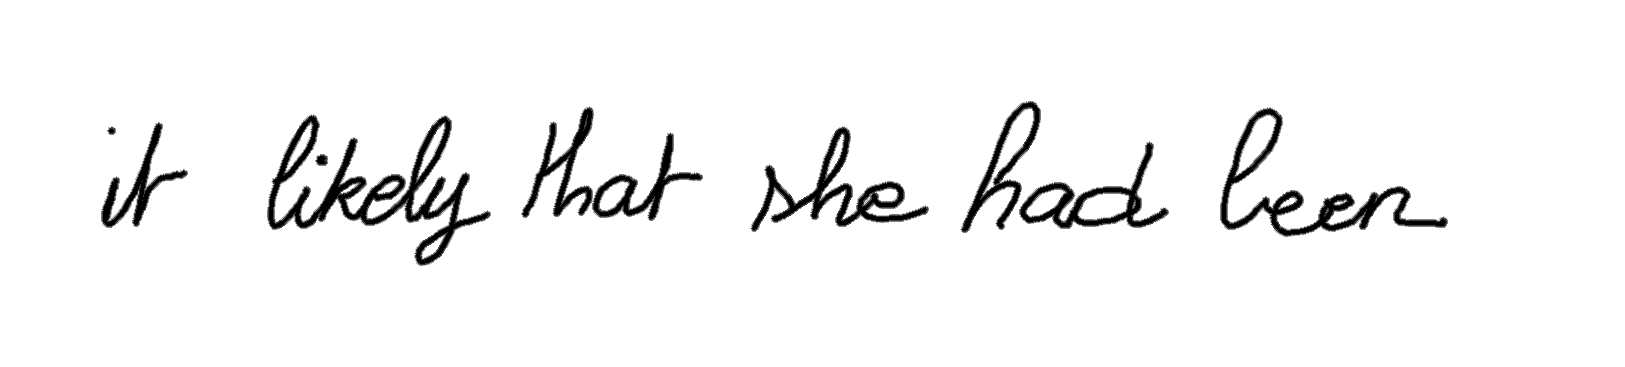 it likely that she had been